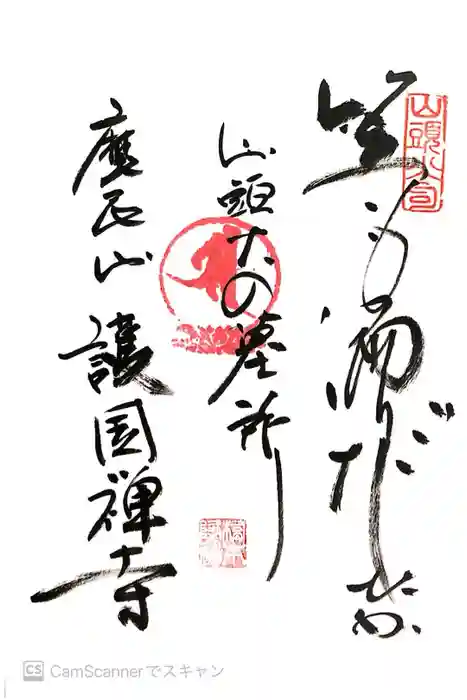 山頭火
笠も漏りだしたか
山頭火の墓所
護国禅寺
CS CamScannerでスキャン